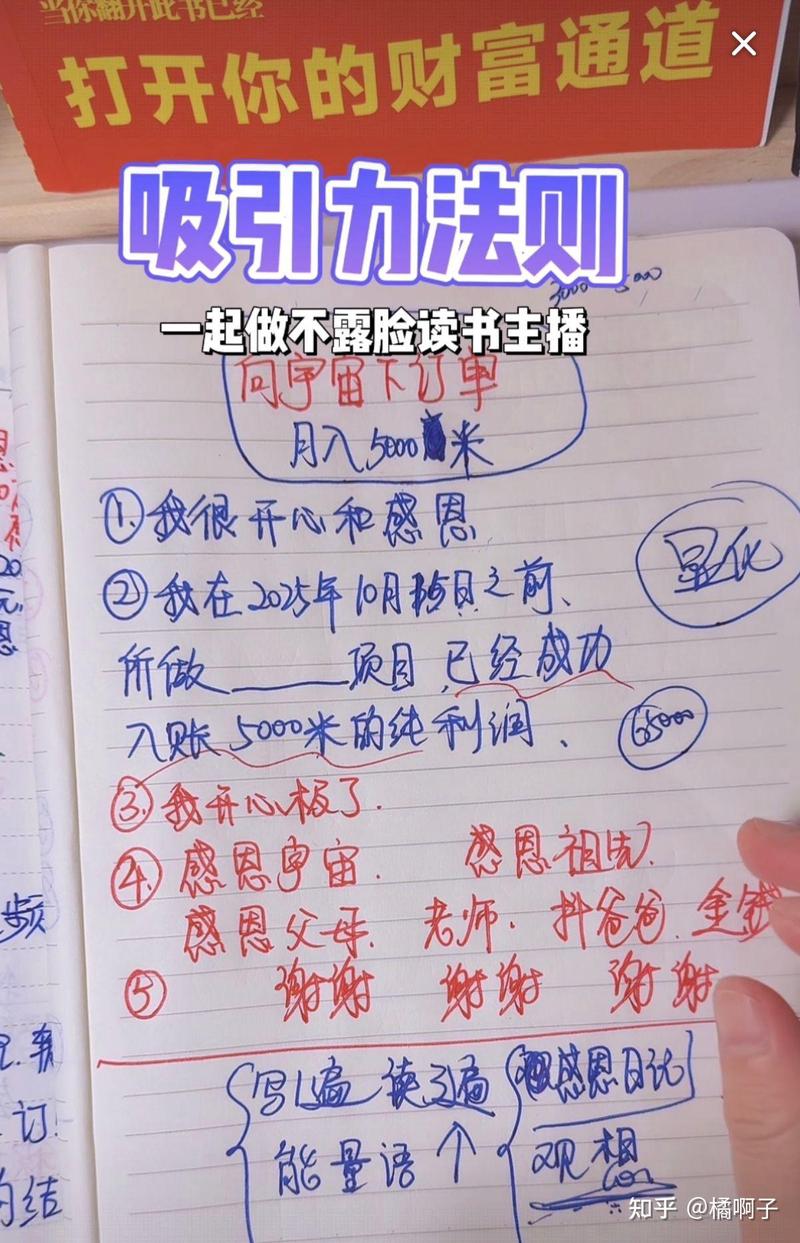 当你翻开此书已经
打开你的财富通道
吸引力法则
一起做不露脸读书主播
向宇宙下订单
月入5000米
①我很开心和感恩
量化
②我在2025年10月 日之前、
所做______项目已经成功
入账5000米的纯利润、
65000
③我开心极了.
④感恩宇宙. 感恩祖先.
感恩父母. 老师. 抖爸爸. 金钱
⑤ 谢谢 谢谢 谢谢
写1遍 读3遍 感恩日记
能量语↑ 观相
频
订
结
知乎 @橘啊子